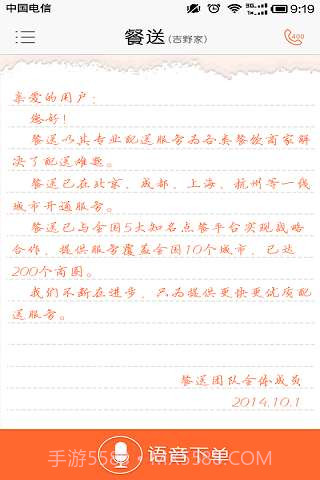 中国电信
3G
1X
9:19
餐送(吉野家)
400
亲爱的用户：
您好！
餐送以其专业配送服务为各类餐饮商家解
决了配送难题。
餐送已在北京、成都、上海、杭州等一线
城市开通服务。
餐送已与全国5大知名点餐平台实现战略
合作，提供服务覆盖全国10个城市，已达
200个商圈。
我们不断在进步，只为提供更快更优质配
送服务。
餐送团队全体成员
2014.10.1
语音下单